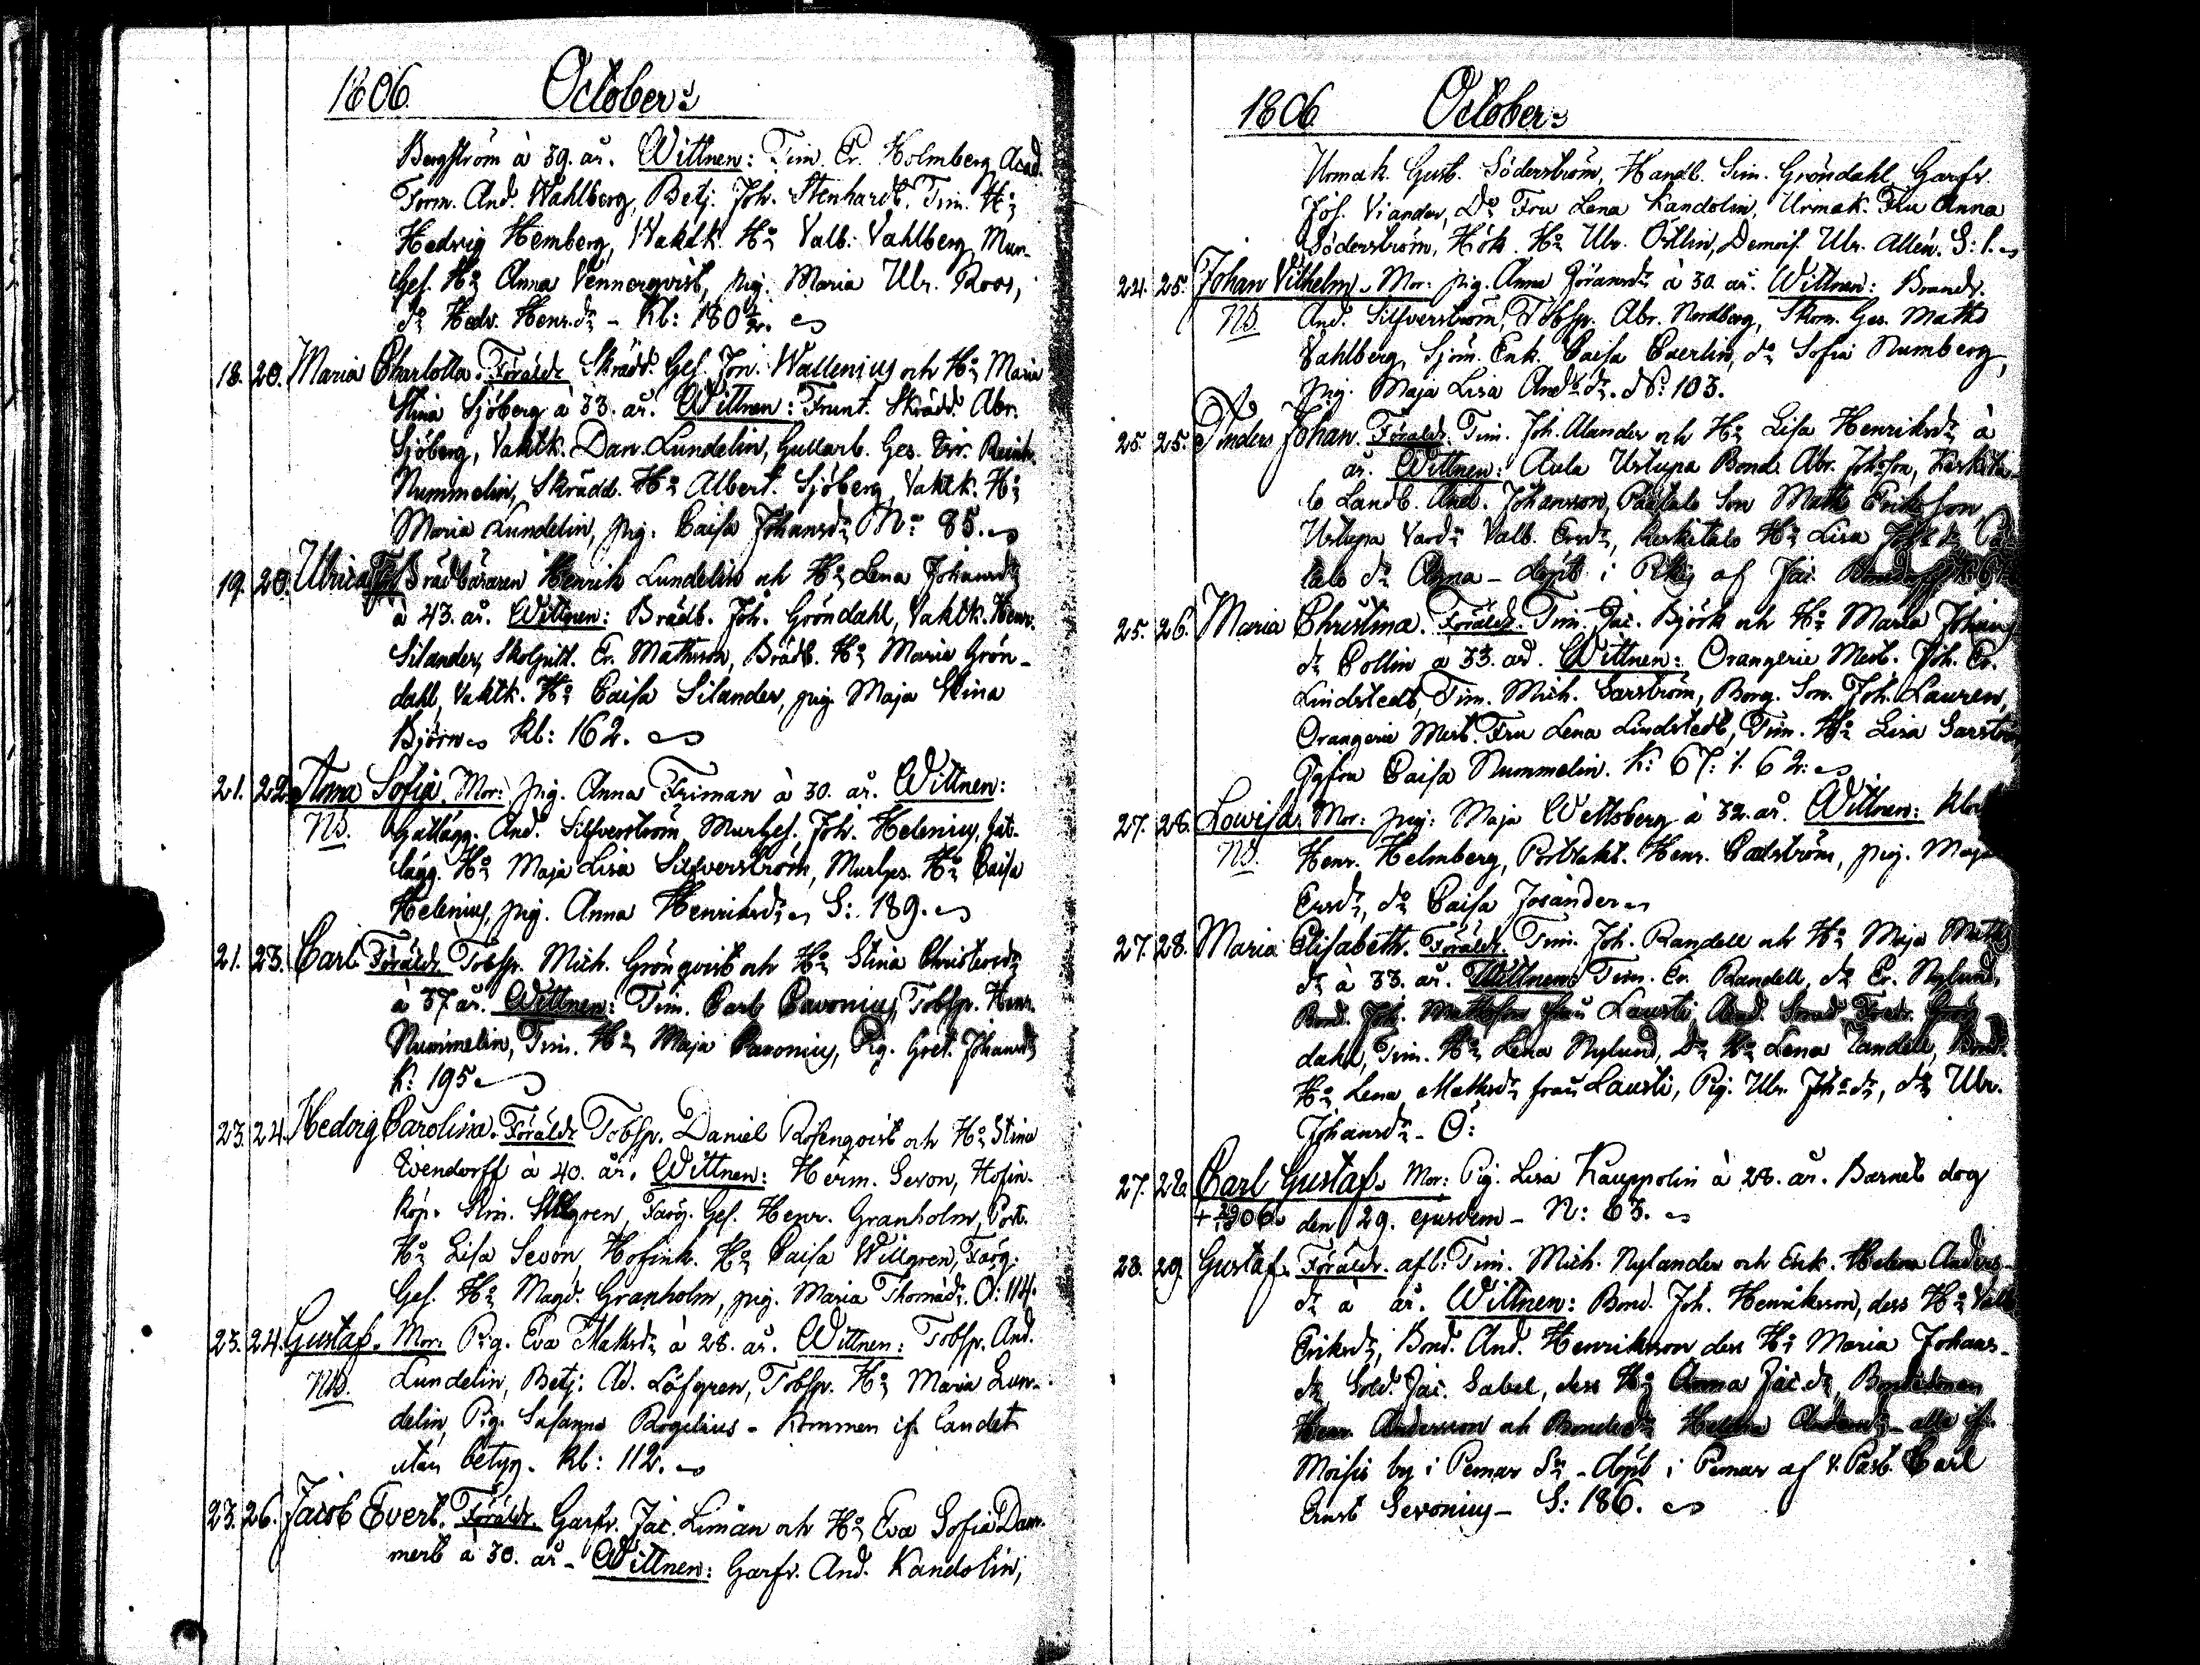 1806. October:
Bergström à 39. år. Wittnen: Tim. Er. Holmberg, Acad.
Form. And. Wahlberg, Betj. Joh. Stenhardt, Tim. Hu
Hedvig Hemberg, Vaktk. Hu Valb. Vahlberg, Mur-
Ges. Hu Anna Vennerqvist, pig. Maria Ulr. Roos,
do Hedv. Henr.dr - Kl: 180
18. 20. Maria Charlotta. Föräldr. Skrädd. Ges. Jon. Wallenius och Hu Maria
Stina Sjöberg à 33. år. Wittnen: Frunt. Skrädd. Abr.
Sjöberg, Vaktk. Dan. Lundelin, Gullarb. Ges. Reinh.
Nummelin, Skrädd. Hu Albert. Sjöberg, Vaktk. Hu
Maria Lundelin, pig. Caisa Johansdr No 85.
19. 20. Ulrica Brädbäraren Henrik Lundelin och Hu Lena Johansdr
à 43. år. Wittnen: Brädb. Joh. Gröndahl, Vaktk. Henr.
Silander, Er. Mathsson, Brädb. Hu Maria Grön-
dahl, Vaktk. Hu Caisa Silander, pig. Maja Stina
Björn Kl: 162.
21. 22. Anna Sofia. Mor: pig. Anna Friman à 30. år. Wittnen:
NB. Gatlägg. And. Silfverström, MurGes. Joh. Helenius, Gat-
lägg. Hu Maja Lisa Silfverström, Murges. Hu Caisa
Helenius, pig. Anna Henriksdr S: 189.
21. 23. Carl Föräldr. Tobsp. Mich. Grönqvist och Hu Stina Christersdr
à 37 år. Wittnen: Tim. Carl Cavonius, Tobsp. Henr.
Nummelin, Tim. Hu Maja Cavonius, Pig. Gret. Johansdr
K: 195
23. 24. Hedvig Carolina. Föräldr. Tobsp. Daniel Rosenqvist och Hu Stina
Evendorff à 40. år. Wittnen: Herm. Sevon, Hofin.
Köp. Sim. Willgren, Färg. Ges. Henr. Granholm, Port.
Hu Lisa Sevon, Hofink. Hu Caisa Willgren, Färg.
Ges. Hu Magd. Granholm, pig. Maria Thomædr. O: 114.
23. 24. Gustaf. Mor: Pig. Eva Mathsdr à 28. år. Wittnen: Tobsp. And.
NB. Lundelin, Betj: Ad. Löfgren, Tobsp. Hu Maria Lun-
delin, Pig. Susanna Rogelius - Kommen ifr. landet
utan betyg. Kl: 112.
23. 26. Jacob Evert. Föräldr. Garfv. Jac. Liman och Hu Eva Sofia Dam-
mert à 30. år - Wittnen: Garfv. And. Kandolin,
1806 October:
Urmak. Gust. Söderström, Handl. Sim. Gröndahl, Garfv.
Jos. Viander, Do Fru Lena Kandolin, Urmak. Fru Anna
Söderström, Hök. Hu Ulr. Östlin, Demois. Ulr. Allén. S: 1.
24. 25. Johan Vilhelm. Mor: pig. Anna Göransdr à 30. år. Wittnen: Brandv.
NB. And. Silfverström, Tobsp. Abr. Nordberg, Skom. Ges. Maths
Vahlberg, Sjöm. Enk. Caisa Caerlin, do Sofia Numberg,
pig. Maja Lisa And.dr. No: 103.
25. 25. Anders Johan. Föräldr. Tim. Joh. Alander och Hu Lisa Henriksdr à
år. Wittnen: Aula Ustupa Bond. Abr. Johsson,
Landb. And. Johansson, Son Math Eriksson,
Ustupa Valb. Ersdr, Keskitalo Hu Lisa
do Anna - döpt i af Jac.
25. 26. Maria Christina. Föräldr. Tim. Jac. Björk och Hu Maria Johans-
dr Collin à 33. år. Wittnen: Orangerie Mest. Joh. Er.
Lindstedt, Tim. Mich. Sarström, Borg. Son. Joh. Lauren,
Orangerie Mest. Fru Lena Lindstedt, Tim. Hu Lisa Sarström
Jgfru Caisa Nummelin. K: 67: 1. 62:
27. 28. Lowisa. Mor: pig: Maja Wettsberg à 32. år. Wittnen:
NB. Henr. Helmberg, Henr. Cadström, pig. Maja
Ersdr, do Caisa Josander
27. 28. Maria Elisabeth. Föräldr. Tim. Joh. Randell och Hu Maja Maths
dr à 33. år. Wittnen: Tim. Er. Randell, do Er. Nylund,
Bond. Joh. Mathsson från Lausti,
dahl, Tim. Hu Lena Nylund, Do Hu Lena Randell, Bond.
Hu Lena Mathsdr från Lausti, Pig. Ulr. Joh.dr, do Ulr.
Johansdr - O:
27. 28. Carl Gustaf. Mor: Pig. Lisa Kauppolin à 28. år. Barnet dog
den 29. ejusdem - N: 63.
28. 29. Gustaf. Föräldr. afl. Tim. Mich. Nylander och Enk. Helena Anders-
dr à år. Wittnen: Bond. Joh. Henriksson, dess Hu Valb
Eriksdr, Bond. And. Henriksson dess Hu Maria Johans-
dr Sold. Jac. Sabel, dess Hu Anna Jac.dr,
Henr. Andersson och Helena alla ifr.
Moisis by i Pemar Sn - döpt i Pemar af V. Past. Carl
Ernst Sevonius - S: 186.